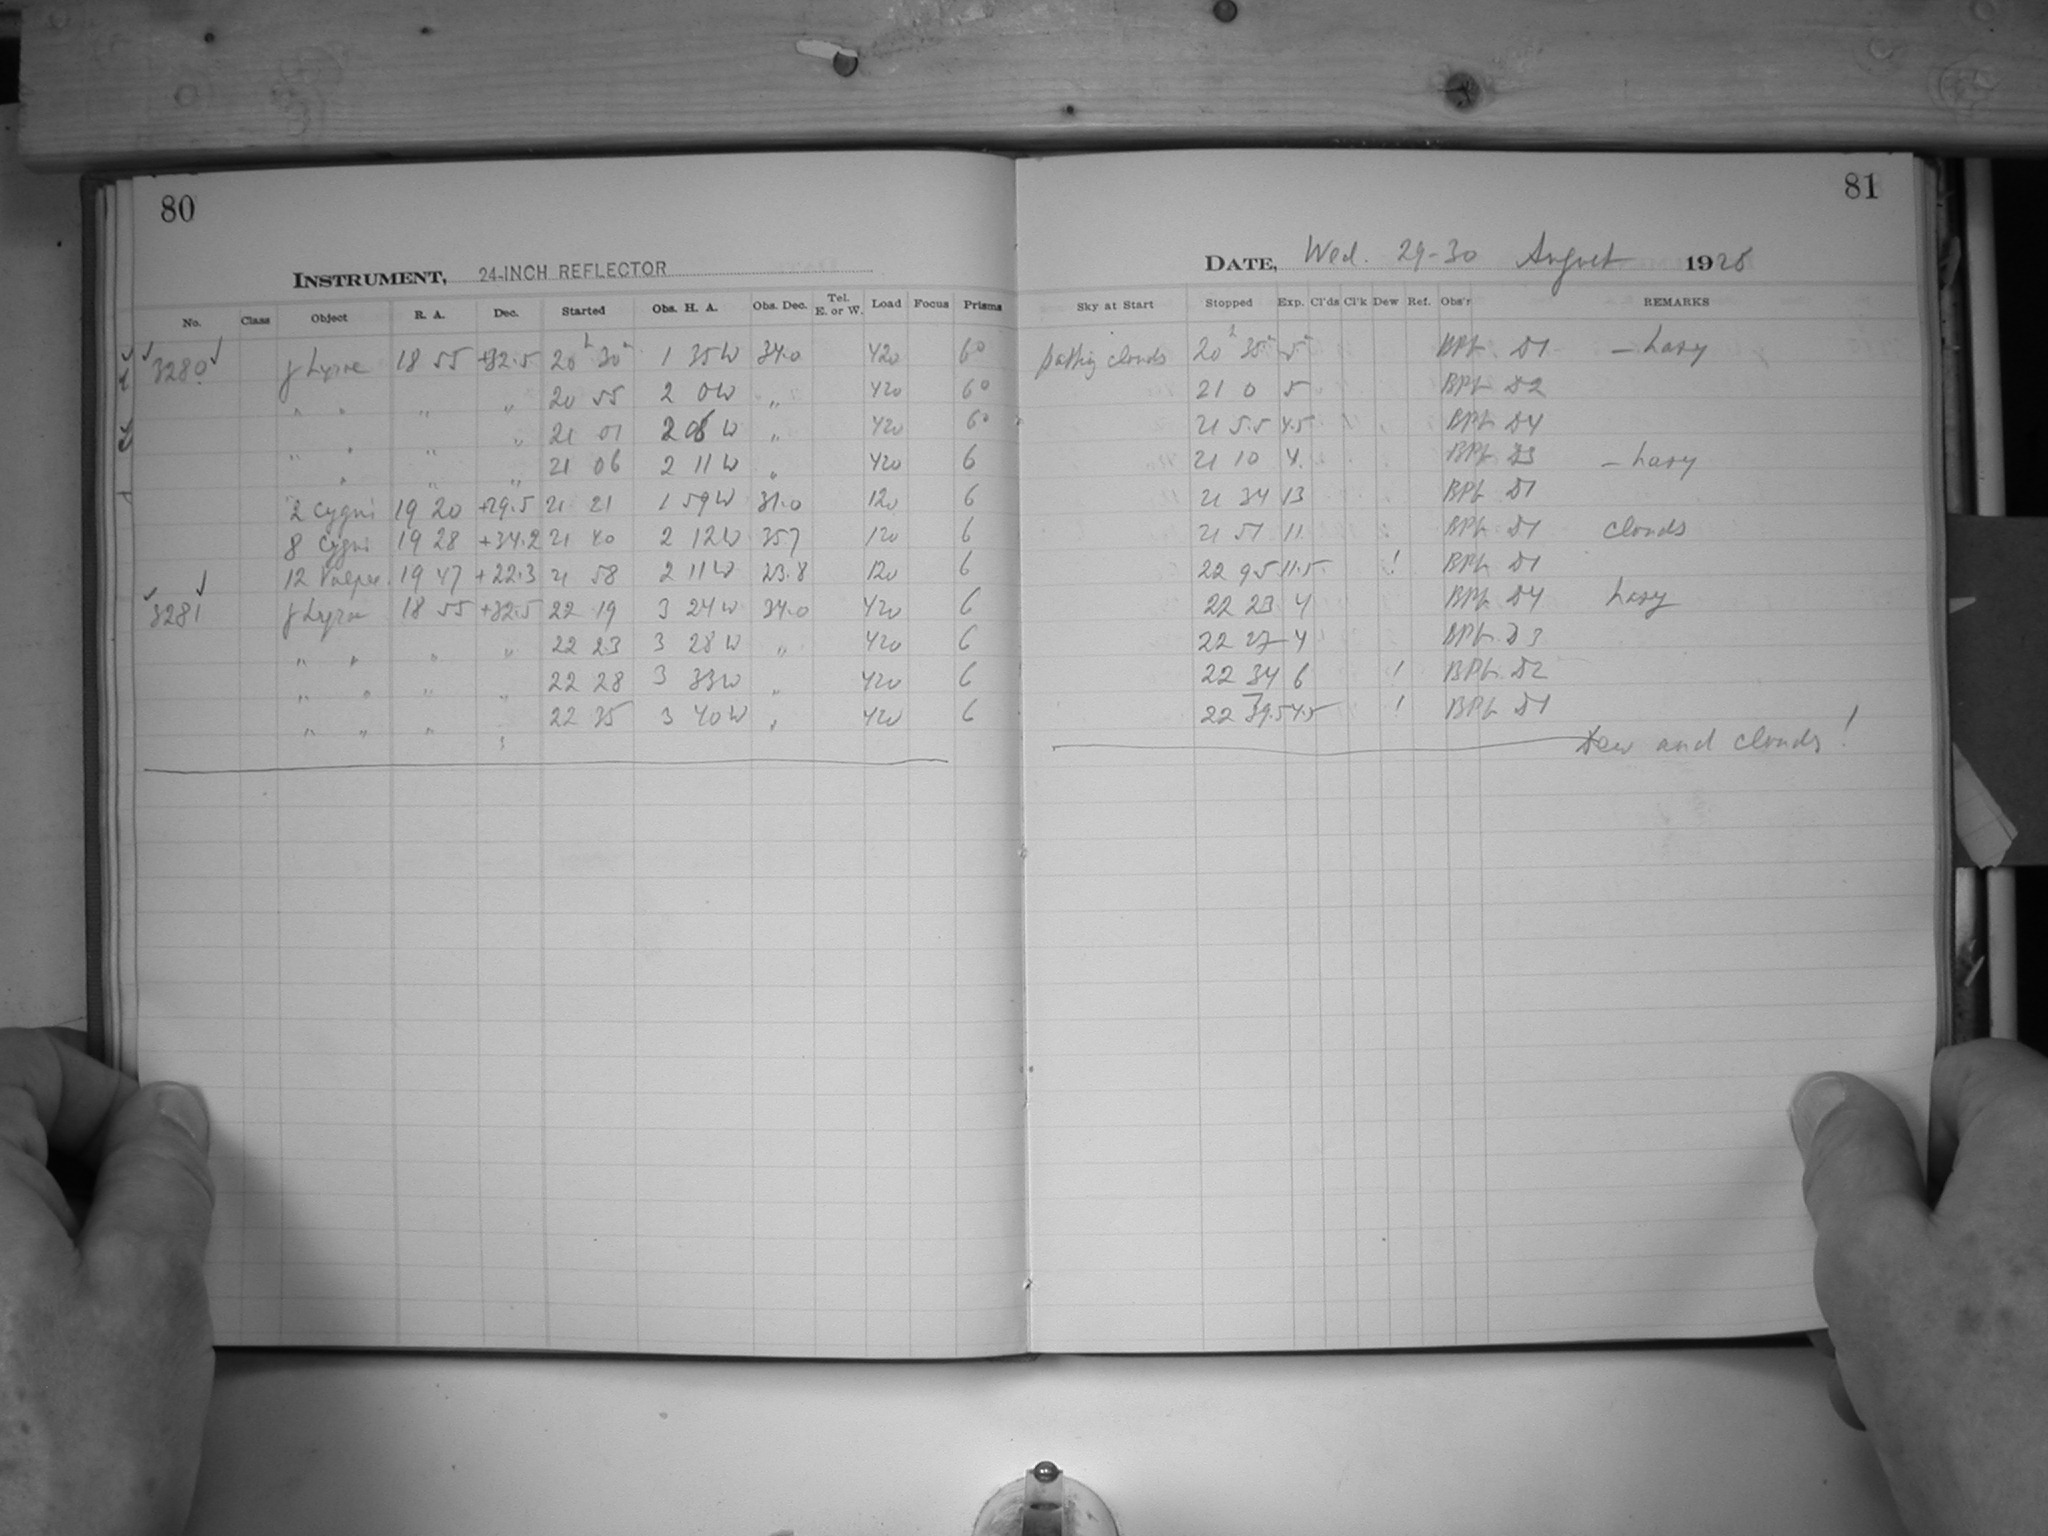 80
INSTRUMENT, 24-INCH REFLECTOR
No. Class Object R. A. Dec. Started Obs. H. A. Obs. Dec. Tel. E. or W. Load Focus Prisms
3280 γ Lyrae 18 55 +32.5 20h 30m 1 35W 34.0 420 6°
" " " " 20 55 2 0W " 420 6°
" " " " 21 01 2 06 W " 420 6°
" " " 21 06 2 11 W " 420 6
2 Cygni 19 20 +29.5 21 21 1 59W 31.0 120 6
8 Cygni 19 28 +34.2 21 40 2 12W 357 120 6
12 Vulpec. 19 47 +22.3 21 58 2 11W 23.8 120 6
3281 γ Lyrae 18 55 +32.5 22 19 3 24W 34.0 420 6
" " " " 22 23 3 28W " 420 6
" " " " 22 28 3 33W " 420 6
" " " " 22 35 3 40W " 420 6
81
DATE, Wed. 29-30 August 1928
Sky at Start Stopped Exp. Cl'ds Cl'k Dew Ref. Obs'r REMARKS
passing clouds 20h 35m 5m BPG D1 – hazy
21 0 5 BPG D2
21 5.5 4.5 BPG D4
21 10 4. BPG D3 – hazy
21 34 13 BPG D1
21 51 11 BPG D1 clouds
22 9.5 11.5 ! BPG D1
22 23 4 BPG D4 hazy
22 27 4 BPG D3
22 34 6 ! BPG D2
22 39.5 4.5 ! BPG D1
Dew and clouds!